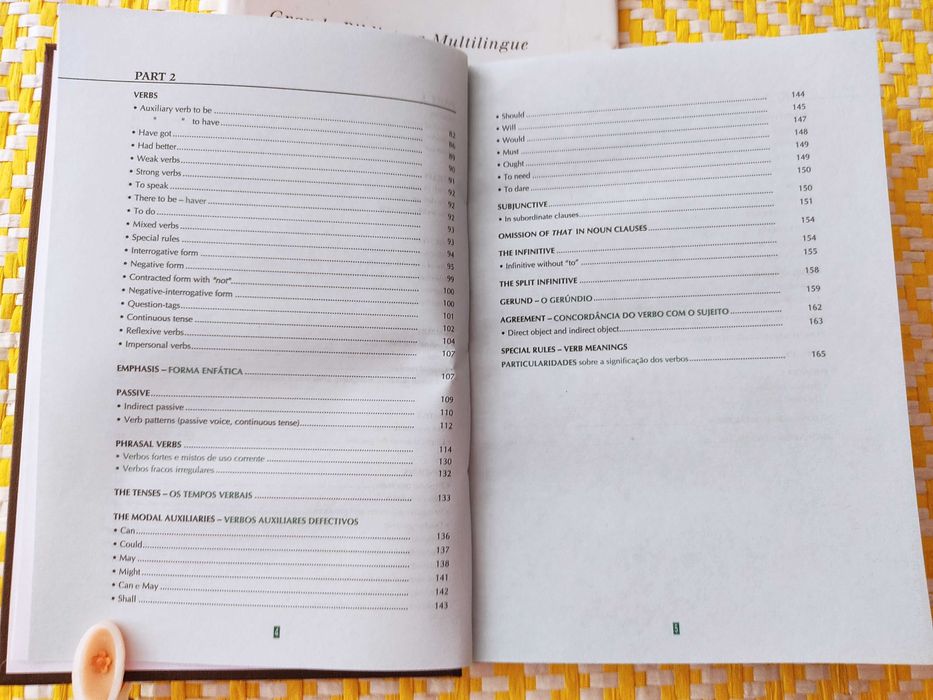 Multilingue
PART 2
VERBS
• Auxiliary verb to be ... 82
" " to have ... 86
• Have got ... 89
• Had better ... 90
• Weak verbs ... 91
• Strong verbs ... 92
• To speak ... 92
• There to be – haver ... 92
• To do ... 93
• Mixed verbs ... 93
• Special rules ... 94
• Interrogative form ... 95
• Negative form ... 99
• Contracted form with "not" ... 100
• Negative-interrogative form ... 100
• Question-tags ... 101
• Continuous tense ... 102
• Reflexive verbs ... 104
• Impersonal verbs ... 107
EMPHASIS – FORMA ENFÁTICA ... 107
PASSIVE ... 109
• Indirect passive ... 110
• Verb patterns (passive voice, continuous tense) ... 112
PHRASAL VERBS ... 114
• Verbos fortes e mistos de uso corrente ... 130
• Verbos fracos irregulares ... 132
THE TENSES – OS TEMPOS VERBAIS ... 133
THE MODAL AUXILIARIES – VERBOS AUXILIARES DEFECTIVOS
• Can ... 136
• Could ... 137
• May ... 138
• Might ... 141
• Can e May ... 142
• Shall ... 143
4
• Should ... 144
• Will ... 145
• Would ... 147
• Must ... 148
• Ought ... 149
• To need ... 149
• To dare ... 150
SUBJUNCTIVE ... 150
• In subordinate clauses ... 151
OMISSION OF THAT IN NOUN CLAUSES ... 154
THE INFINITIVE ... 154
• Infinitive without "to" ... 155
THE SPLIT INFINITIVE ... 158
GERUND – O GERÚNDIO ... 159
AGREEMENT – CONCORDÂNCIA DO VERBO COM O SUJEITO ... 162
• Direct object and indirect object ... 163
SPECIAL RULES – VERB MEANINGS
PARTICULARIDADES sobre a significação dos verbos ... 165
5